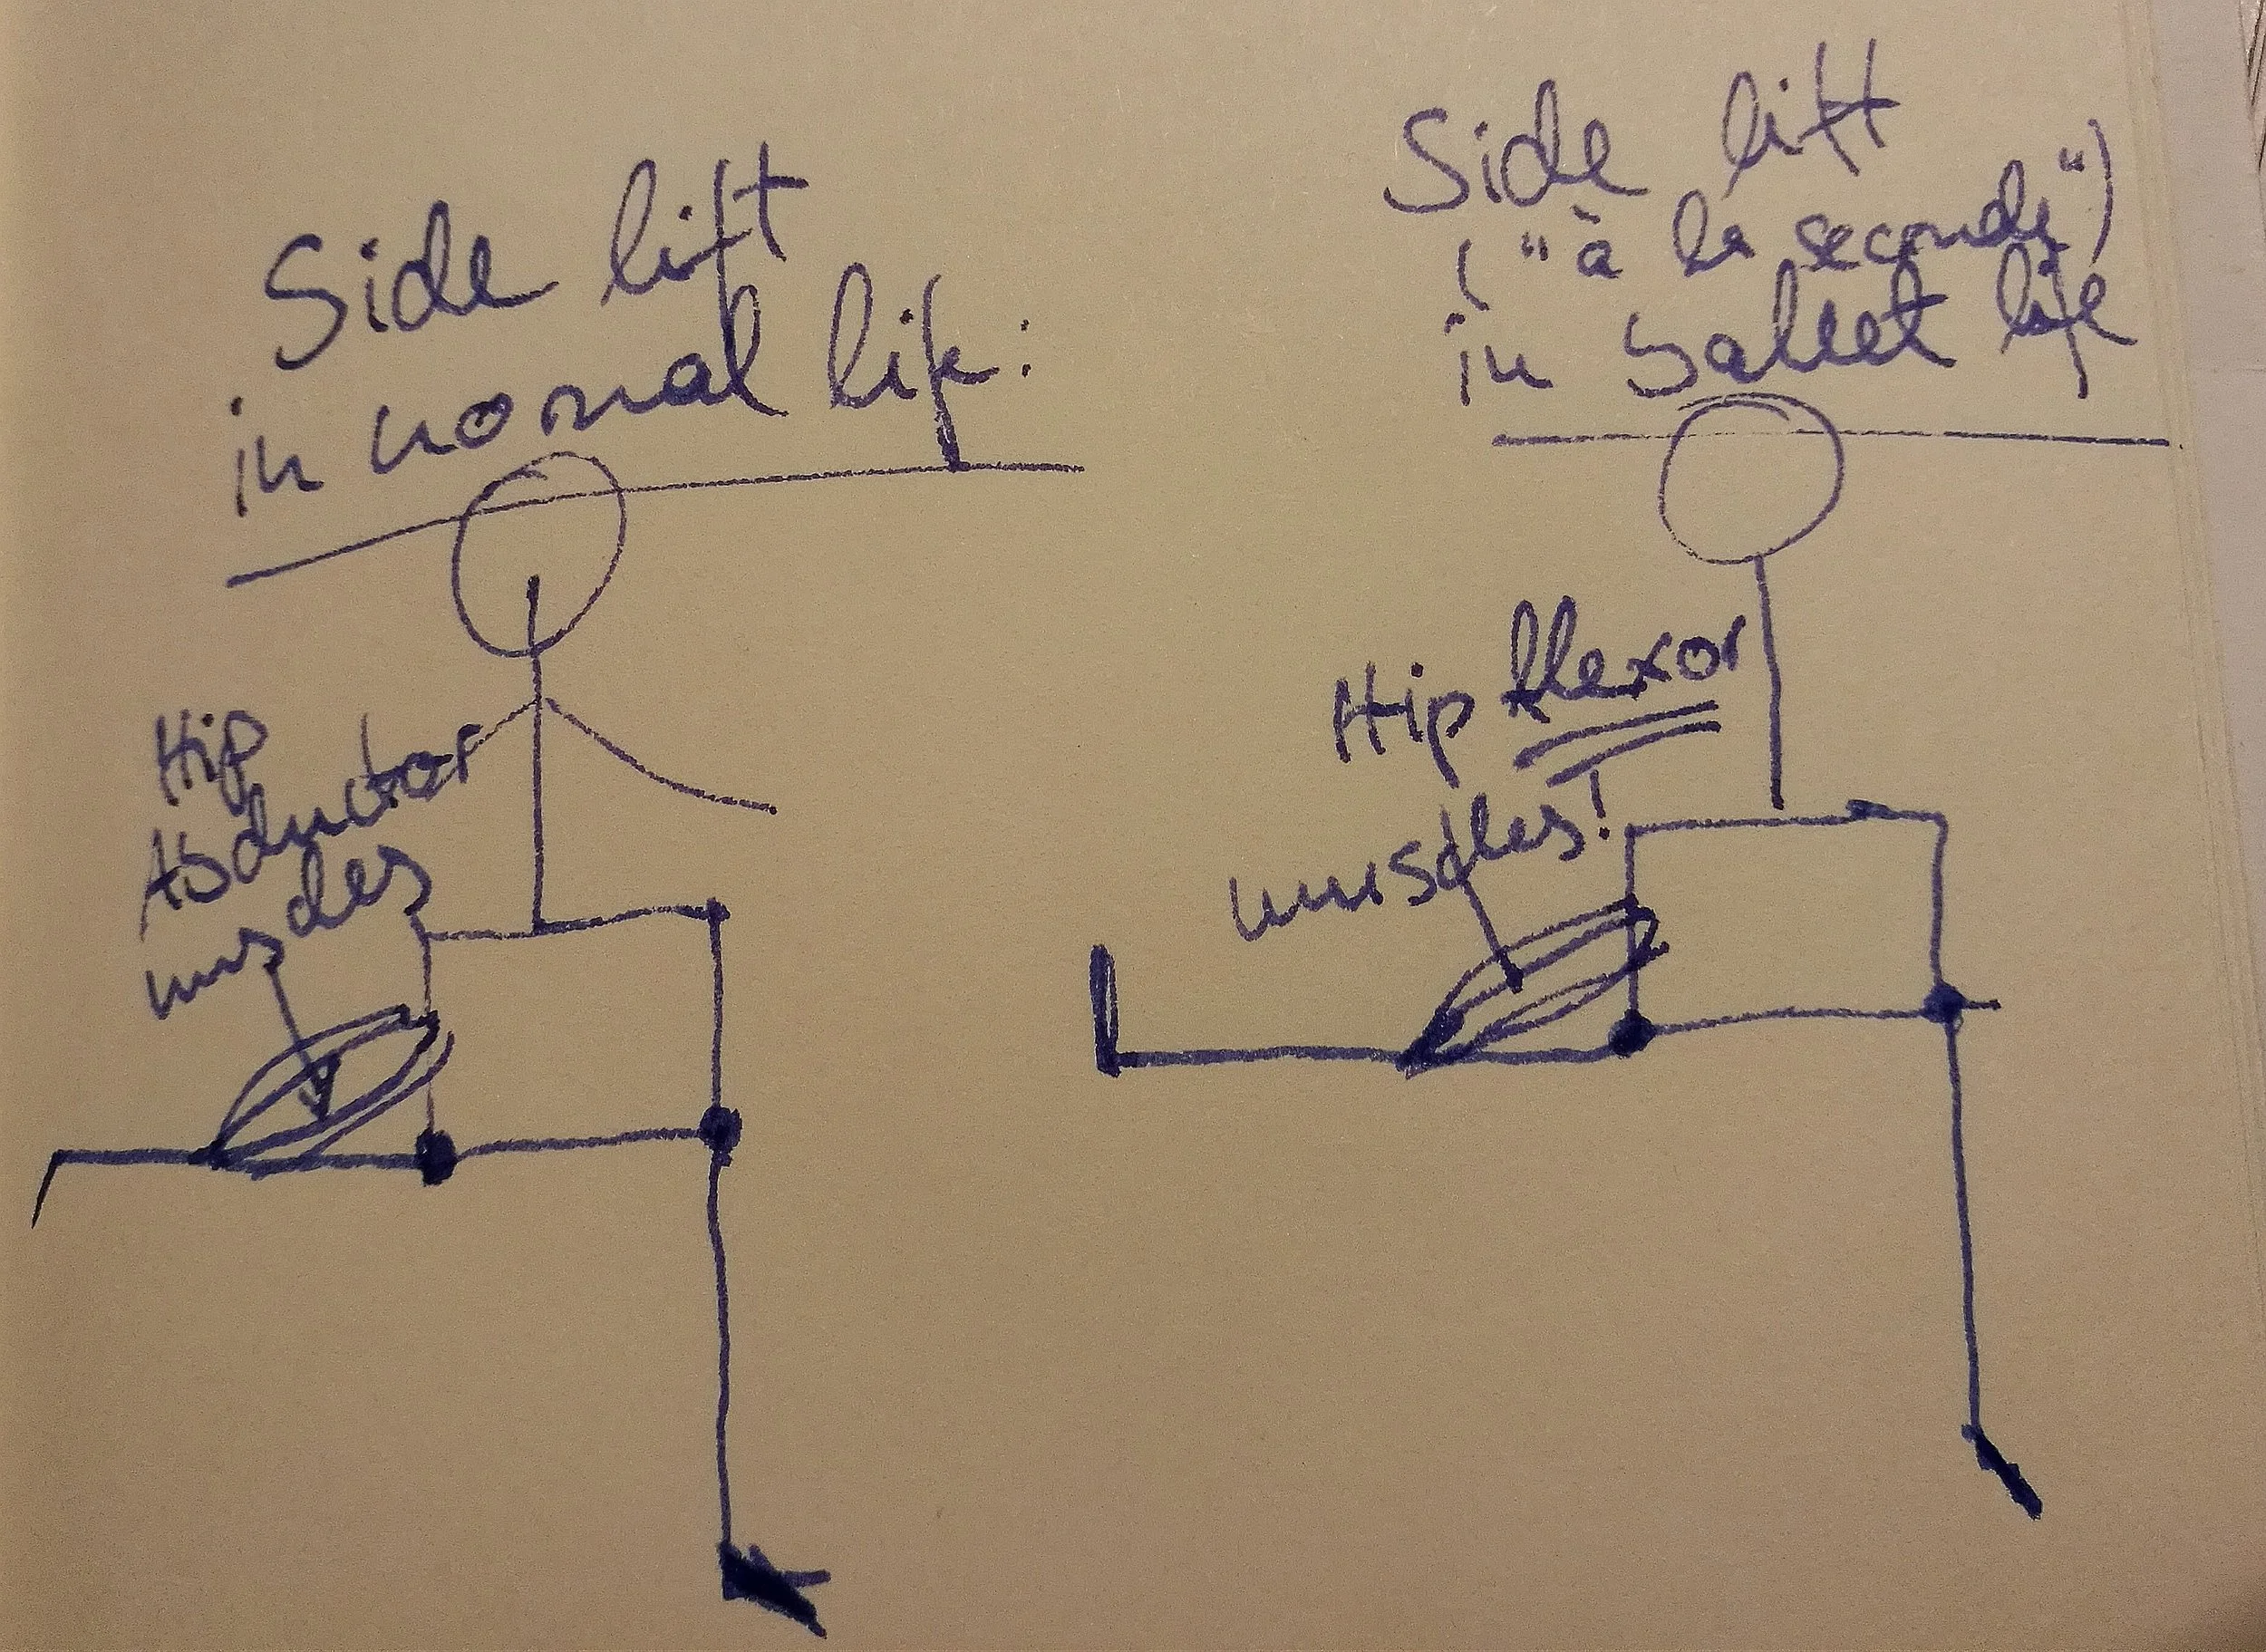 Side lift
in normal life:
Hip
Abductor
muscles
Side lift
("à la seconde")
in ballet life
Hip flexor
muscles!